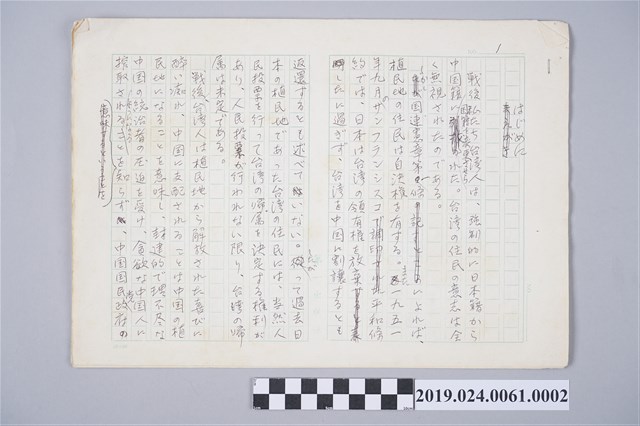 1
はじめに
戦後私たち台湾人は、強制的に日本籍から
中国籍に
された。台湾の住民の意志は全
く無視されたのである。
国連憲章第
条
によれば、
植民地の住民は自決権を有する。一九五一
年九月サンフランシスコで調印した平和条
約では、日本は台湾の領有権を放棄
したに過ぎず、台湾を中国割譲するとも
返還するとも述べていない。
って過去日
本の植民地であった台湾の住民には、当然人
民投票を行って台湾の帰属を決定する権利が
あり、人民投票が行われない限り、台湾の帰
属は未定である。
戦後台湾人は植民地から解放された喜びに
酔い痴れ、中国に支配されることは中国の植
民地になることを意味し、封建的で理不尽な
中国の統治者の圧迫を受け、貪欲な中国人に
搾取されることを知らず、中国国民党政府の
2019.024.0061.0002